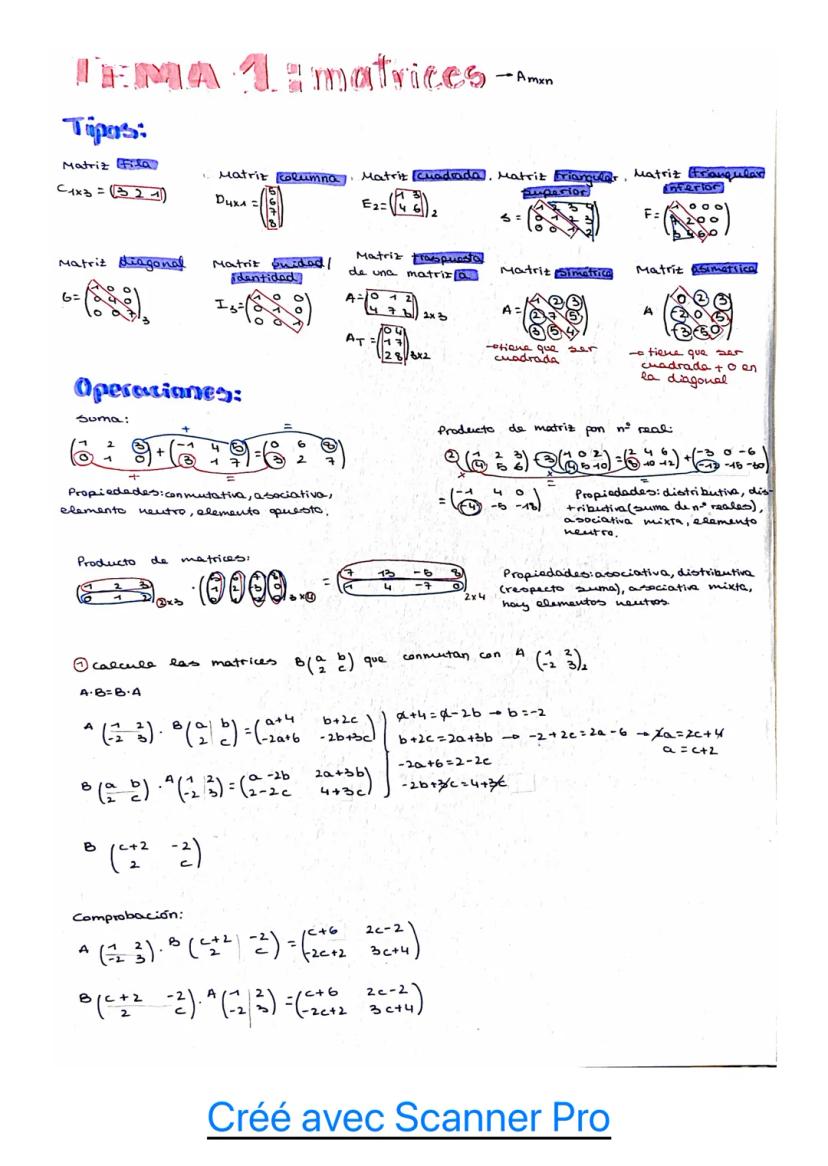 TEMA 1: matrices → Amxn
Tipos:
Matriz fila
C1x3 = (3 2 1)
Matriz columna
D4x1 = (5 6 7 8)
Matriz cuadrada
E2 = (1 3
4 6)2
Matriz triangular superior
S = (1 2 3 4
0 1 2 3
0 0 1 2)
Matriz triangular inferior
F = (1 0 0 0
7 2 0 0
3 4 6 0)
Matriz diagonal
G = (1 0 0
0 4 0
0 0 7)3
Matriz unidad/
identidad
I3 = (1 0 0
0 1 0
0 0 1)
Matriz traspuesta
de una matriz a
A = (0 1 2
4 7 8)2x3
AT = (0 4
1 7
2 8)3x2
Matriz simétrica
A = (1 2 3
2 7 5
3 5 4)
→ tiene que ser
cuadrada
Matriz asimetrica
A (0 2 3
-2 0 5
-3 -5 0)
→ tiene que ser
cuadrada + 0 en
la diagonal
Operaciones:
Suma:
+ =
(1 2 3
0 1 0) + (-1 4 5
3 1 7) = (0 6 8
3 2 7)
+ =
Propiedades: conmutativa, asociativa,
elemento neutro, elemento opuesto.
Producto de matriz pon nº real:
2 (1 2 3
4 5 6) - 3 (1 0 2
4 5 10) = (2 4 6
8 10 12) + (-3 0 -6
-12 -15 -30)
x x = =
= (-1 4 0
-4 -5 -18)
Propiedades: distributiva, dis-
tributiva (suma de nº reales),
asociativa mixta, elemento
neutro.
Producto de matrices:
(1 2 3
0 1 2)2x3 · 3x4 = (7 13 -5 8
1 4 -7 0)2x4
Propiedades: asociativa, distributiva
(respecto suma), asociativa mixta,
hay elementos neutros.
① calcula las matrices B (a b
2 c) que conmutan con A (1 2
-2 3)2
A·B=B·A
A (1 2
-2 3) · B (a b
2 c) = (a+4 b+2c
-2a+6 -2b+3c)
B (a b
2 c) · A (1 2
-2 3) = (a-2b 2a+3b
2-2c 4+3c)
a+4=a-2b → b=-2
b+2c=2a+3b → -2+2c=2a-6 → 2a=2c+4
a=c+2
-2a+6=2-2c
-2b+3c=4+3c
B (c+2 -2
2 c)
Comprobación:
A (1 2
-2 3) · B (c+2 -2
2 c) = (c+6 2c-2
-2c+2 3c+4)
B (c+2 -2
2 c) · A (1 2
-2 3) = (c+6 2c-2
-2c+2 3c+4)
Créé avec Scanner Pro